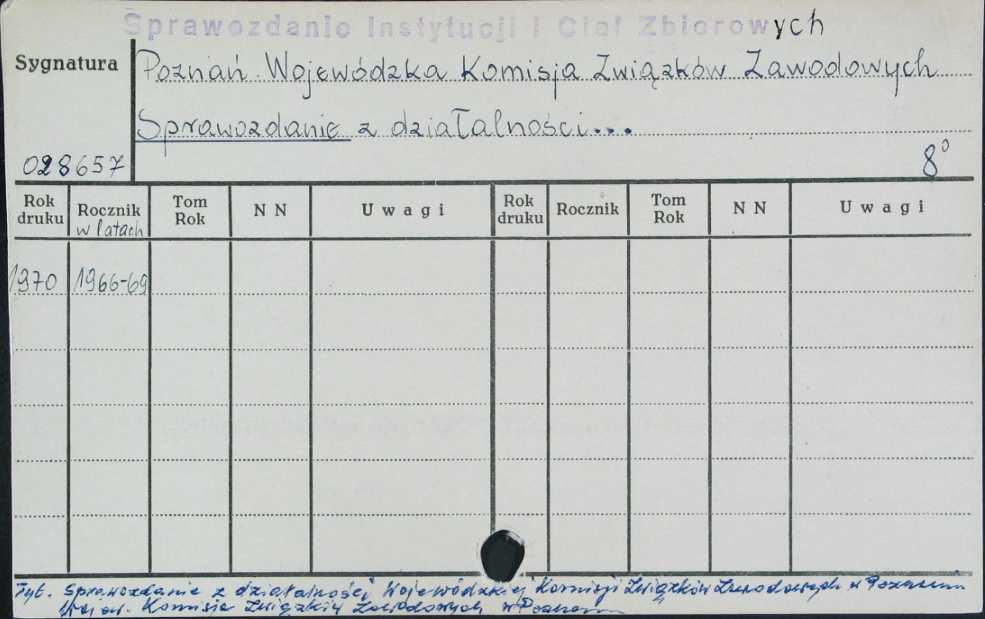 Sprawozdanie Instytucji i Ciał Zbiorowych
Sygnatura
Poznań. Wojewódzka Komisja Związków Zawodowych
Sprawozdanie z działalności...
028657
8°
Rok druku Rocznik w latach Tom Rok NN Uwagi Rok druku Rocznik Tom Rok NN Uwagi
1970 1966-69
Tyt. Sprawozdanie z działalności Wojewódzkiej Komisji Związków Zawodowych w Poznaniu
Komisja Związków Zawodowych w Poznaniu